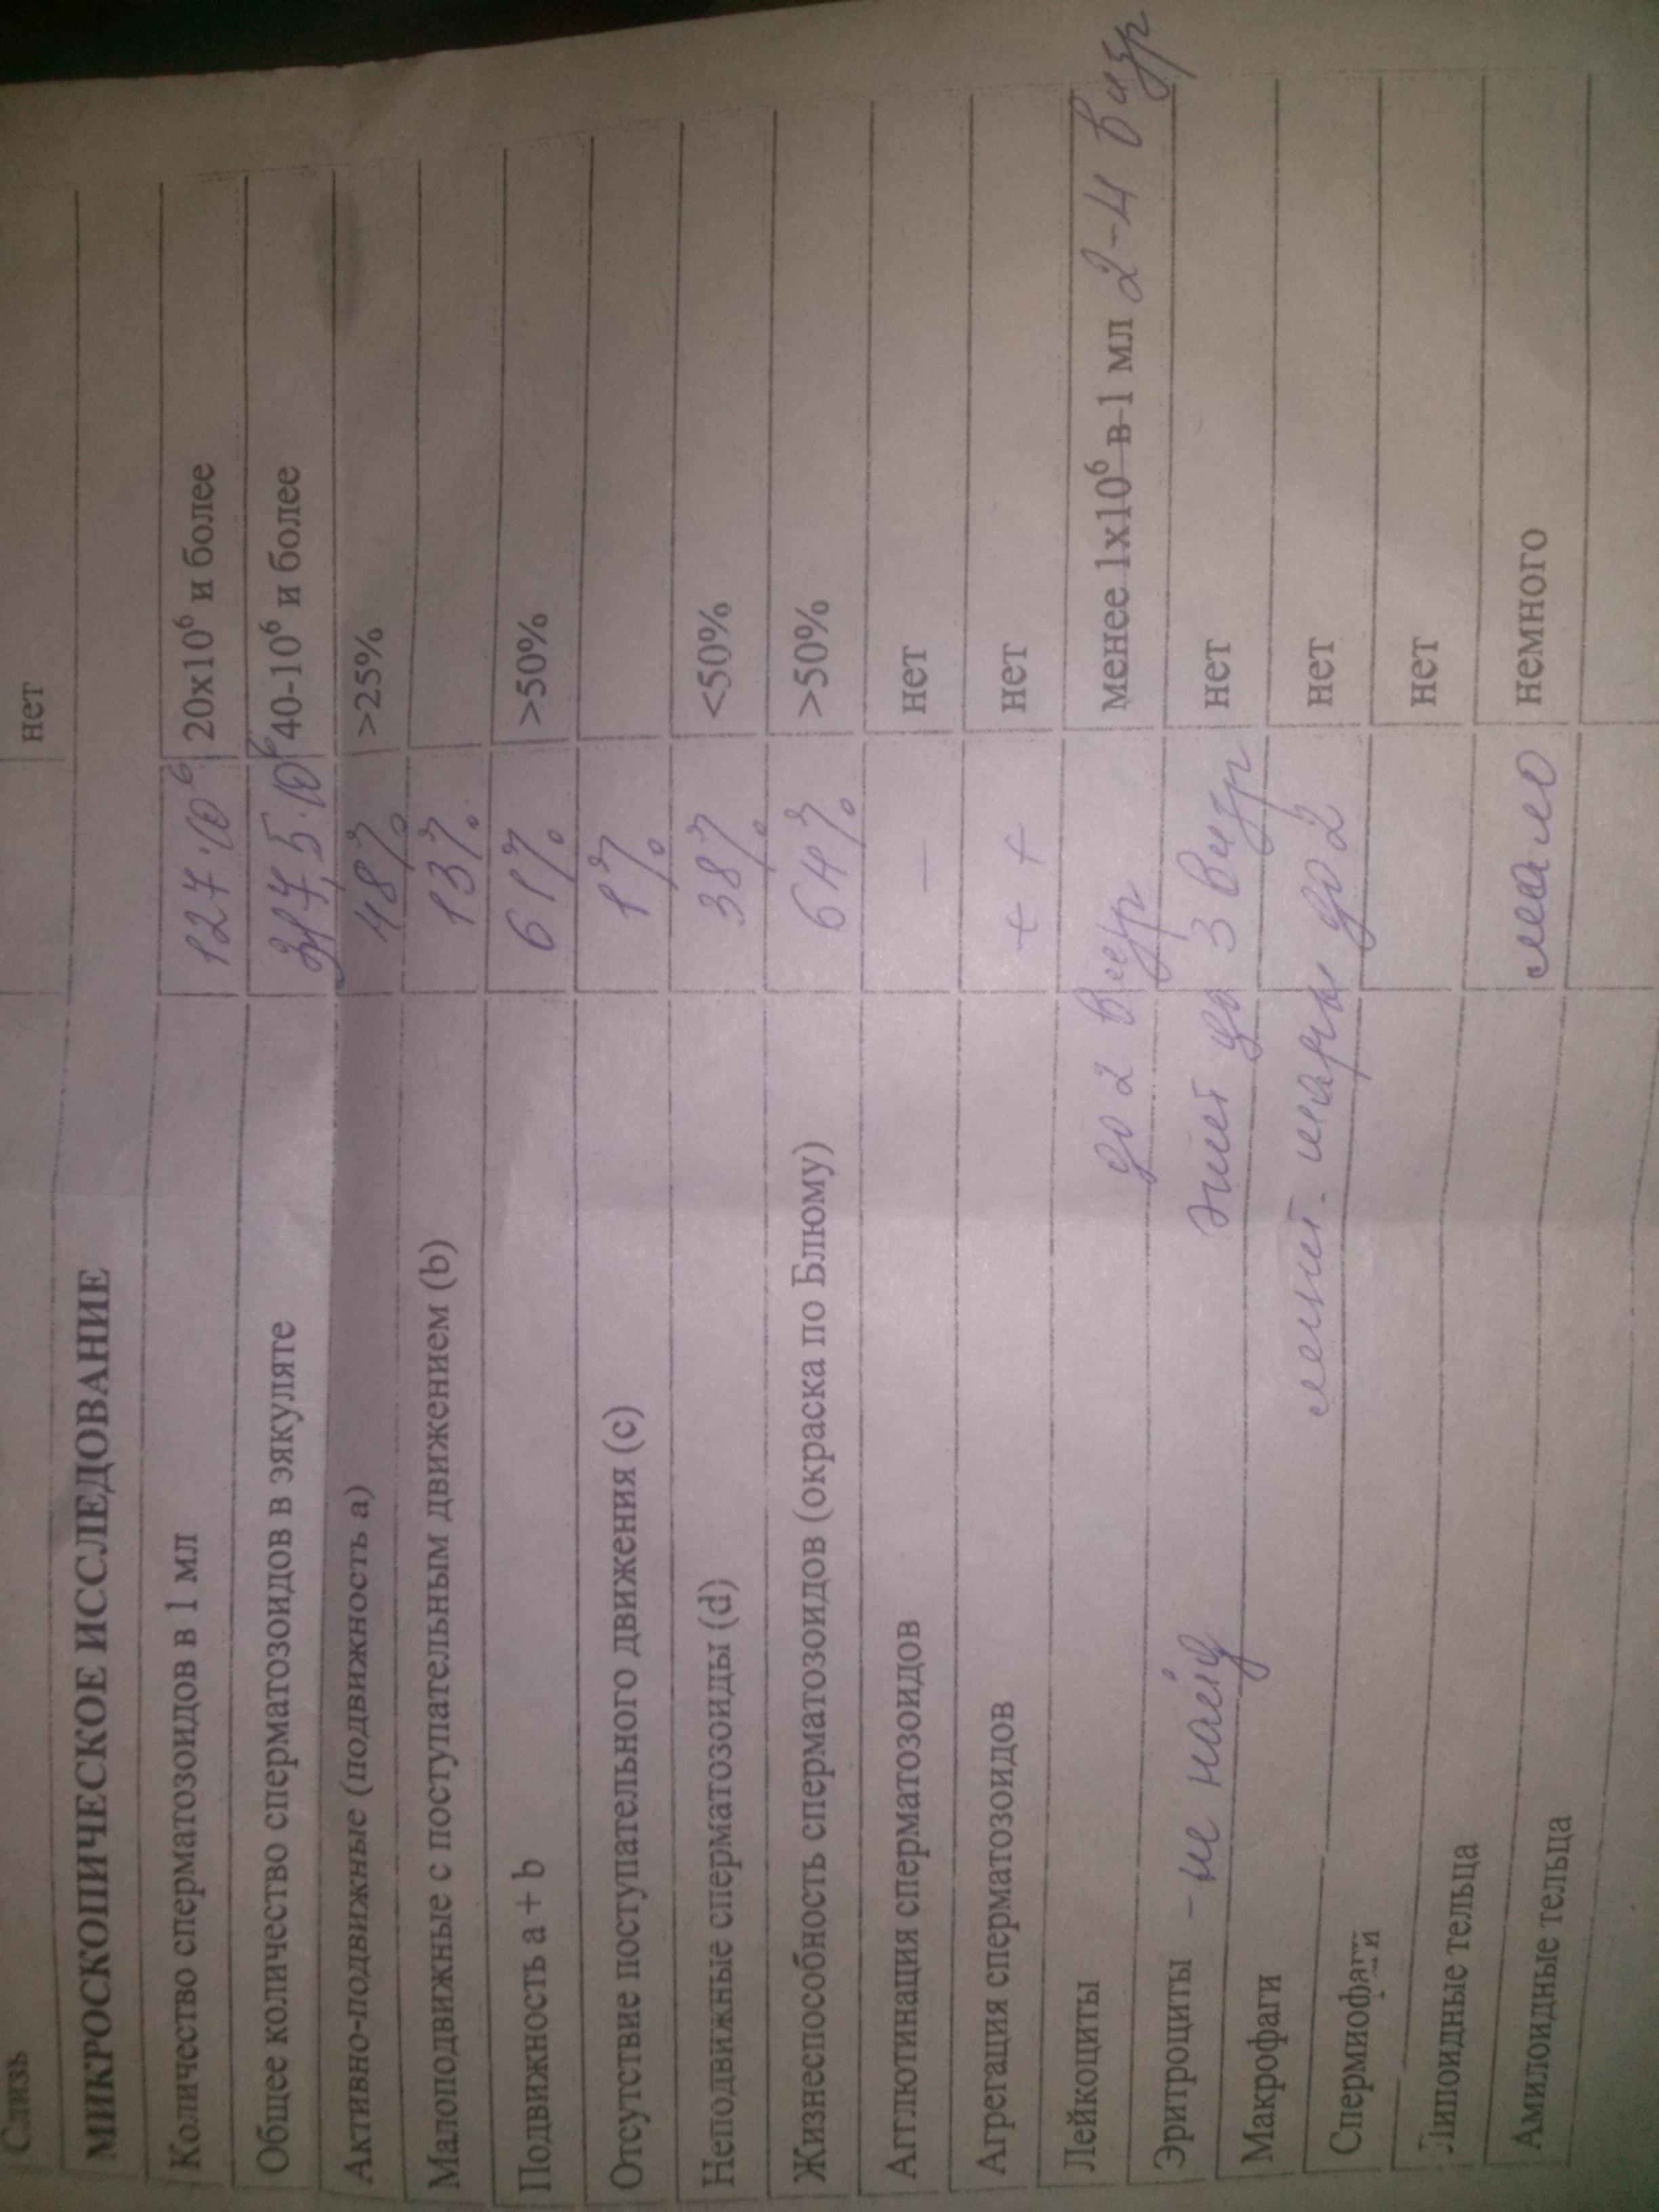 Слизь нет
МИКРОСКОПИЧЕСКОЕ ИССЛЕДОВАНИЕ
Количество сперматозоидов в 1 мл 127·10⁶ 20х10⁶ и более
Общее количество сперматозоидов в эякуляте 317,5·10⁶ 40-10⁶ и более
Активно-подвижные (подвижность а) 48% >25%
Малоподвижные с поступательным движением (b) 13%
Подвижность a + b 61% >50%
Отсутствие поступательного движения (c) 1%
Неподвижные сперматозоиды (d) 38% <50%
Жизнеспособность сперматозоидов (окраска по Блюму) 64% >50%
Агглютинация сперматозоидов — нет
Агрегация сперматозоидов + + нет
Лейкоциты до 2 в п/зр менее 1х10⁶ в 1 мл 2-4 в п/зр
Эритроциты - не найд эпит до 3 в п/зр нет
Макрофаги нет
лецит. шары до 2
Спермиофаги нет
Липоидные тельца нет
Амилоидные тельца мало немного